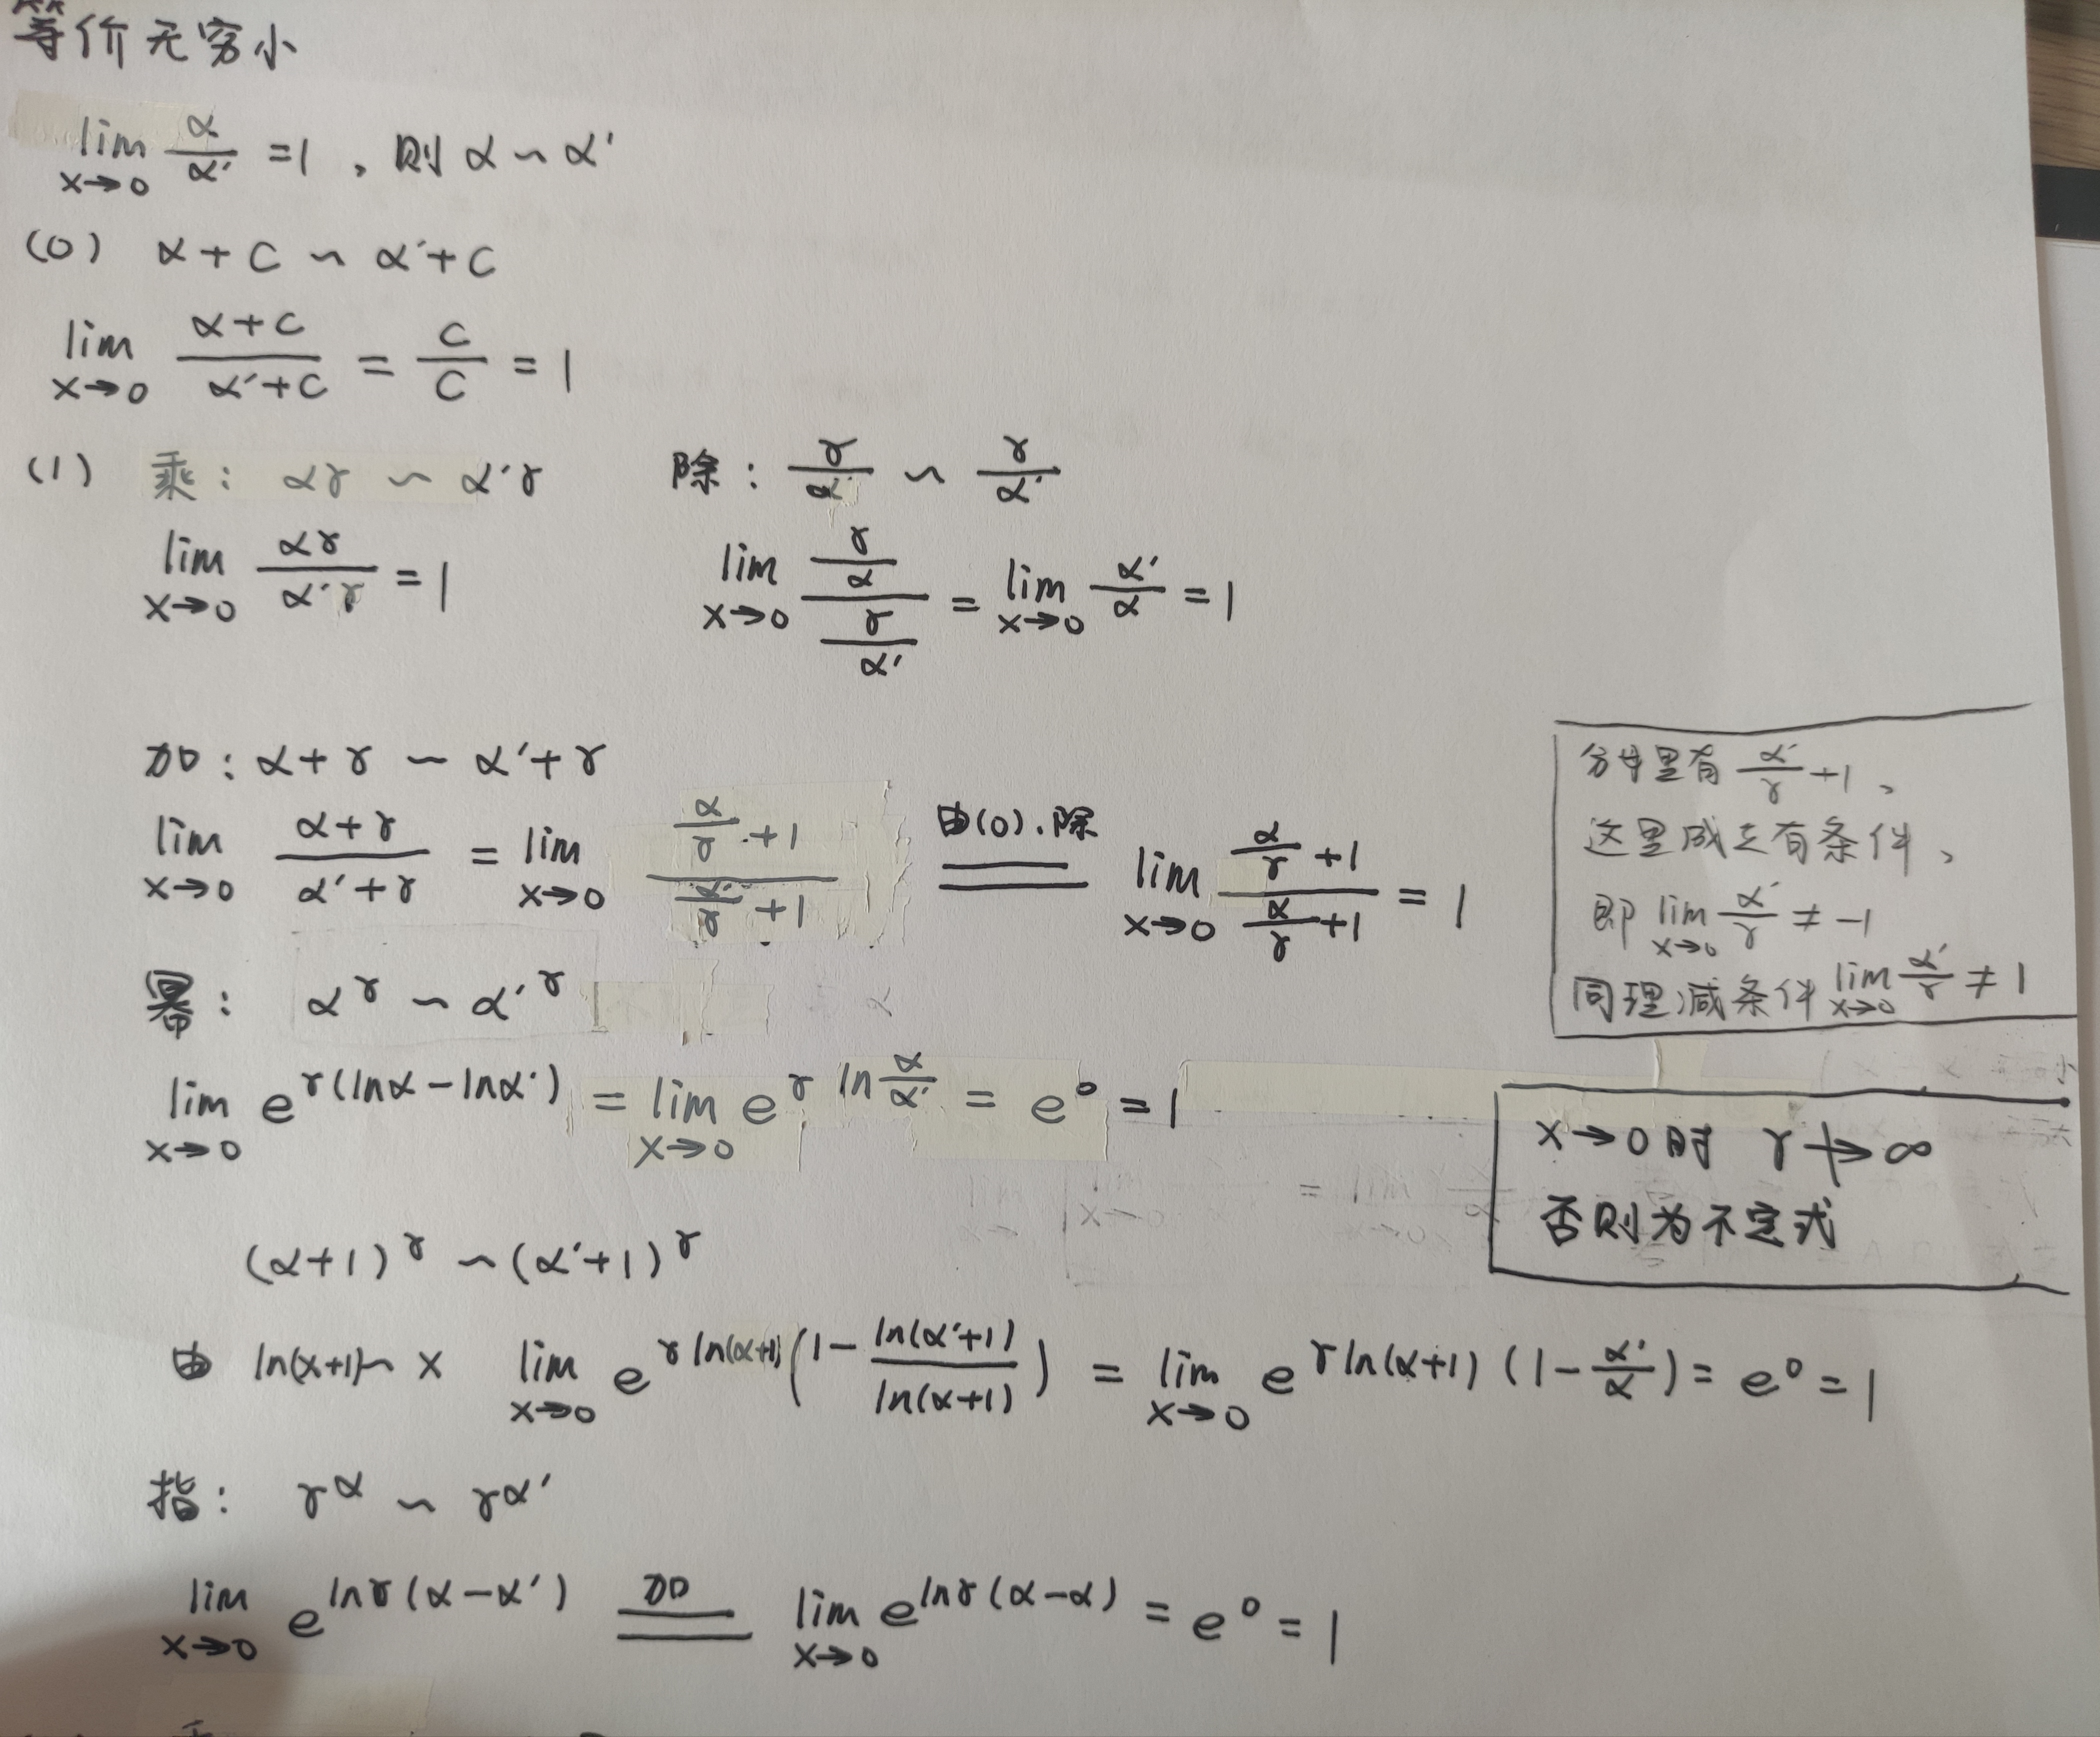 等价无穷小
lim x→0 α/α′ =1，则 α ~ α′
(0) α+C ~ α′+C
lim x→0 (α+C)/(α′+C) = C/C = 1
(1) 乘: αγ ~ α′γ 除: γ/α ~ γ/α′
lim x→0 αγ/α′γ = 1 lim x→0 (γ/α)/(γ/α′) = lim x→0 α′/α = 1
加: α+γ ~ α′+γ
lim x→0 (α+γ)/(α′+γ) = lim x→0 (α/γ+1)/(α′/γ+1) 由(0).除 == lim x→0 (α/γ+1)/(α/γ+1) = 1
分母里有 α′/γ+1、
这里成立有条件、
即 lim x→0 α′/γ ≠ -1
同理减条件 lim x→0 α′/γ ≠ 1
幂: α^γ ~ α′^γ
lim x→0 e^{γ(lnα-lnα′)} = lim x→0 e^{γ ln α/α′} = e^0 = 1
x→0时 γ↛∞
否则为不定式
(α+1)^γ ~ (α′+1)^γ
由 ln(x+1)~x lim x→0 e^{γln(α+1)(1-ln(α′+1)/ln(α+1))} = lim x→0 e^{γln(α+1)(1-α′/α)} = e^0 = 1
指: γ^α ~ γ^α′
lim x→0 e^{lnγ(α-α′)} 加 == lim x→0 e^{lnγ(α-α)} = e^0 = 1